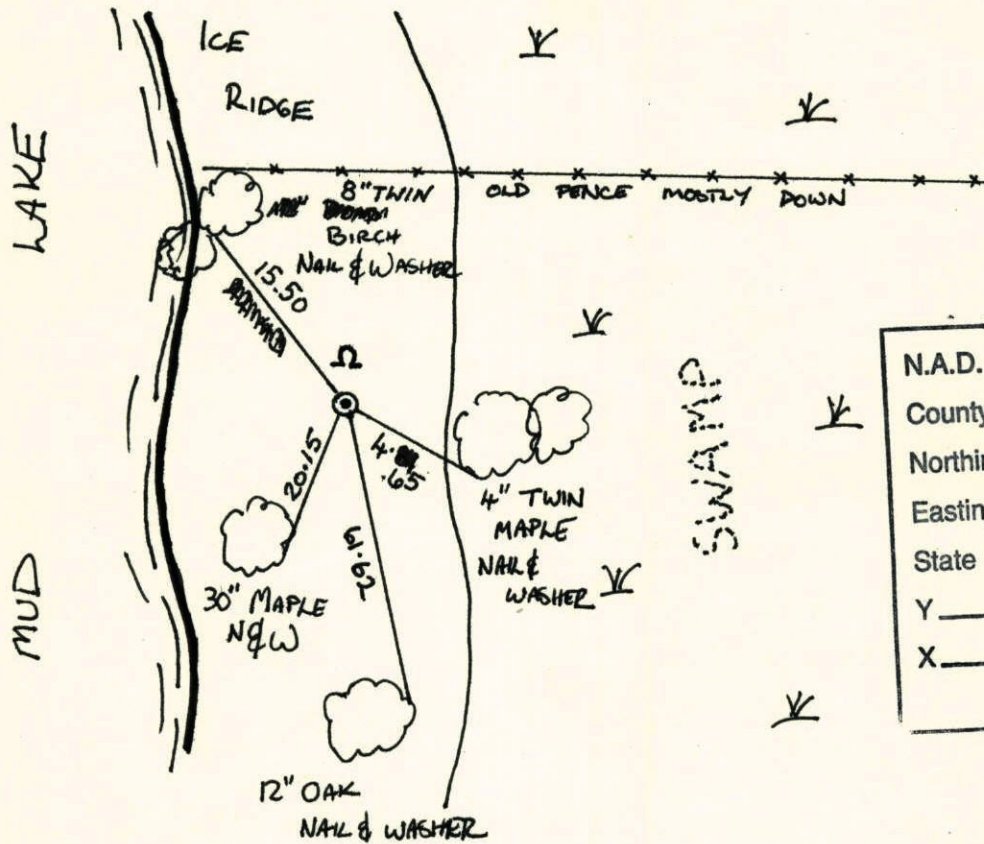 ICE
RIDGE
LAKE
MUD
8" TWIN
BIRCH
NAIL & WASHER
OLD FENCE MOSTLY DOWN
15.50
Ω
20.15
4.
.65
61.62
4" TWIN
MAPLE
NAIL &
WASHER
30" MAPLE
N&W
12" OAK
NAIL & WASHER
SWAMP
N.A.D.
County
Northin
Eastin
State
Y
X